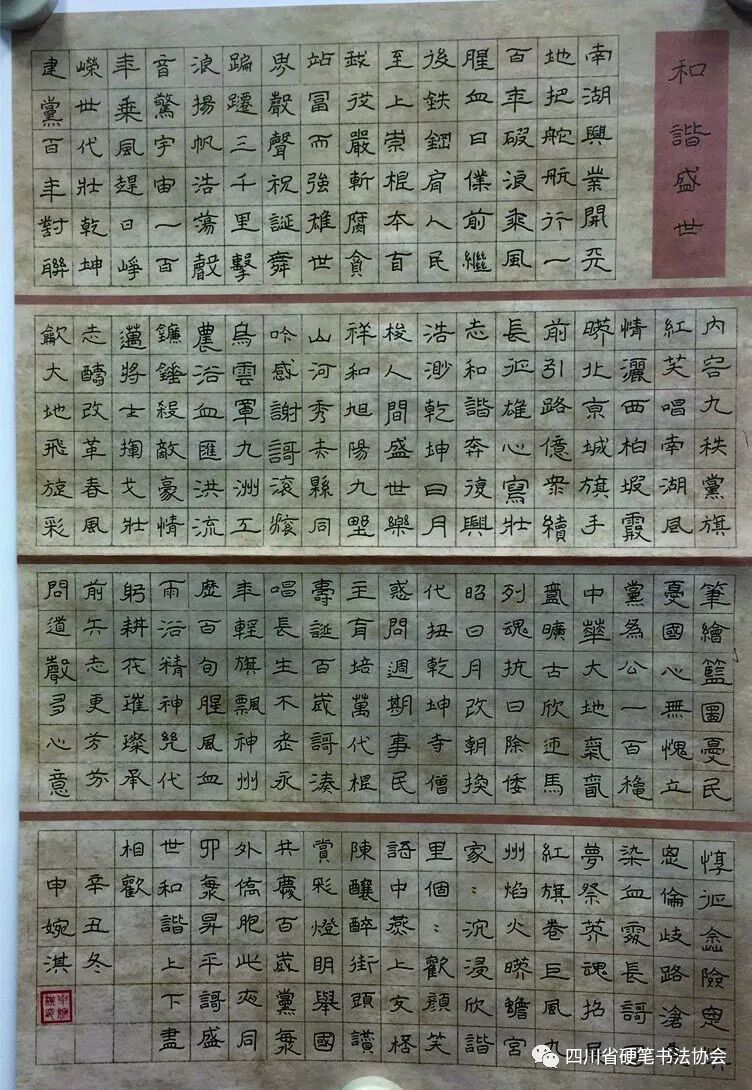 和諧盛世
南湖興業開天
地把舵航行一
百年破浪乘風
腥血日僕前繼
後鉄鋼肩人民
至上崇根本百
戟從嚴斬腐貪
站富而強雄世
界聲聲祝誕舞
蹁躚三千里擊
浪揚帆浩蕩聲
音驚宇宙一百
年乘風趕日崢
嶸世代壯乾坤
建黨百年對聯
內容九秩黨旗
紅芙唱南湖風
情灑西柏坡霞
暎北京城旗手
前引路億眾續
長征雄心寫壯
志和諧奔復興
浩渺乾坤日月
梭人間盛世樂
祥和旭陽九野
山河秀赤縣同
吟感謝哥滾滾
烏雲罩九洲工
農浴血匯洪流
鐮錘殺敵豪情
邁將士揮戈壯
志疇改革春風
歙大地飛旋彩
筆繪籃圖憂民
憂國心無愧立
黨為公一百穐
中華大地氣氤
氳曠古欣迎馬
列魂抗日除倭
昭日月改朝換
代扭乾坤寺僧
惑問週期事民
主育培萬代根
壽誕百歲哥湊
唱長生不老永
年輕旗飄神州
歷百旬腥風血
雨浴精神幾代
躬耕花璀璨承
前矢志更芳芬
問道聲多心意
惇征險
恩倫歧路滄
染血霞長哥
夢祭英魂招
紅旗卷巨風九
州焰火暎蟾宮
家:沉浸欣諧
里個:歡顏笑
語中燕上文
陳釀醉街頭讚
賞彩燈明舉國
共慶百歲黨
外僑胞此夜同
昇平哥盛
世和諧上下盡
相歡
辛丑冬
申婉淇
四川省硬笔书法协会